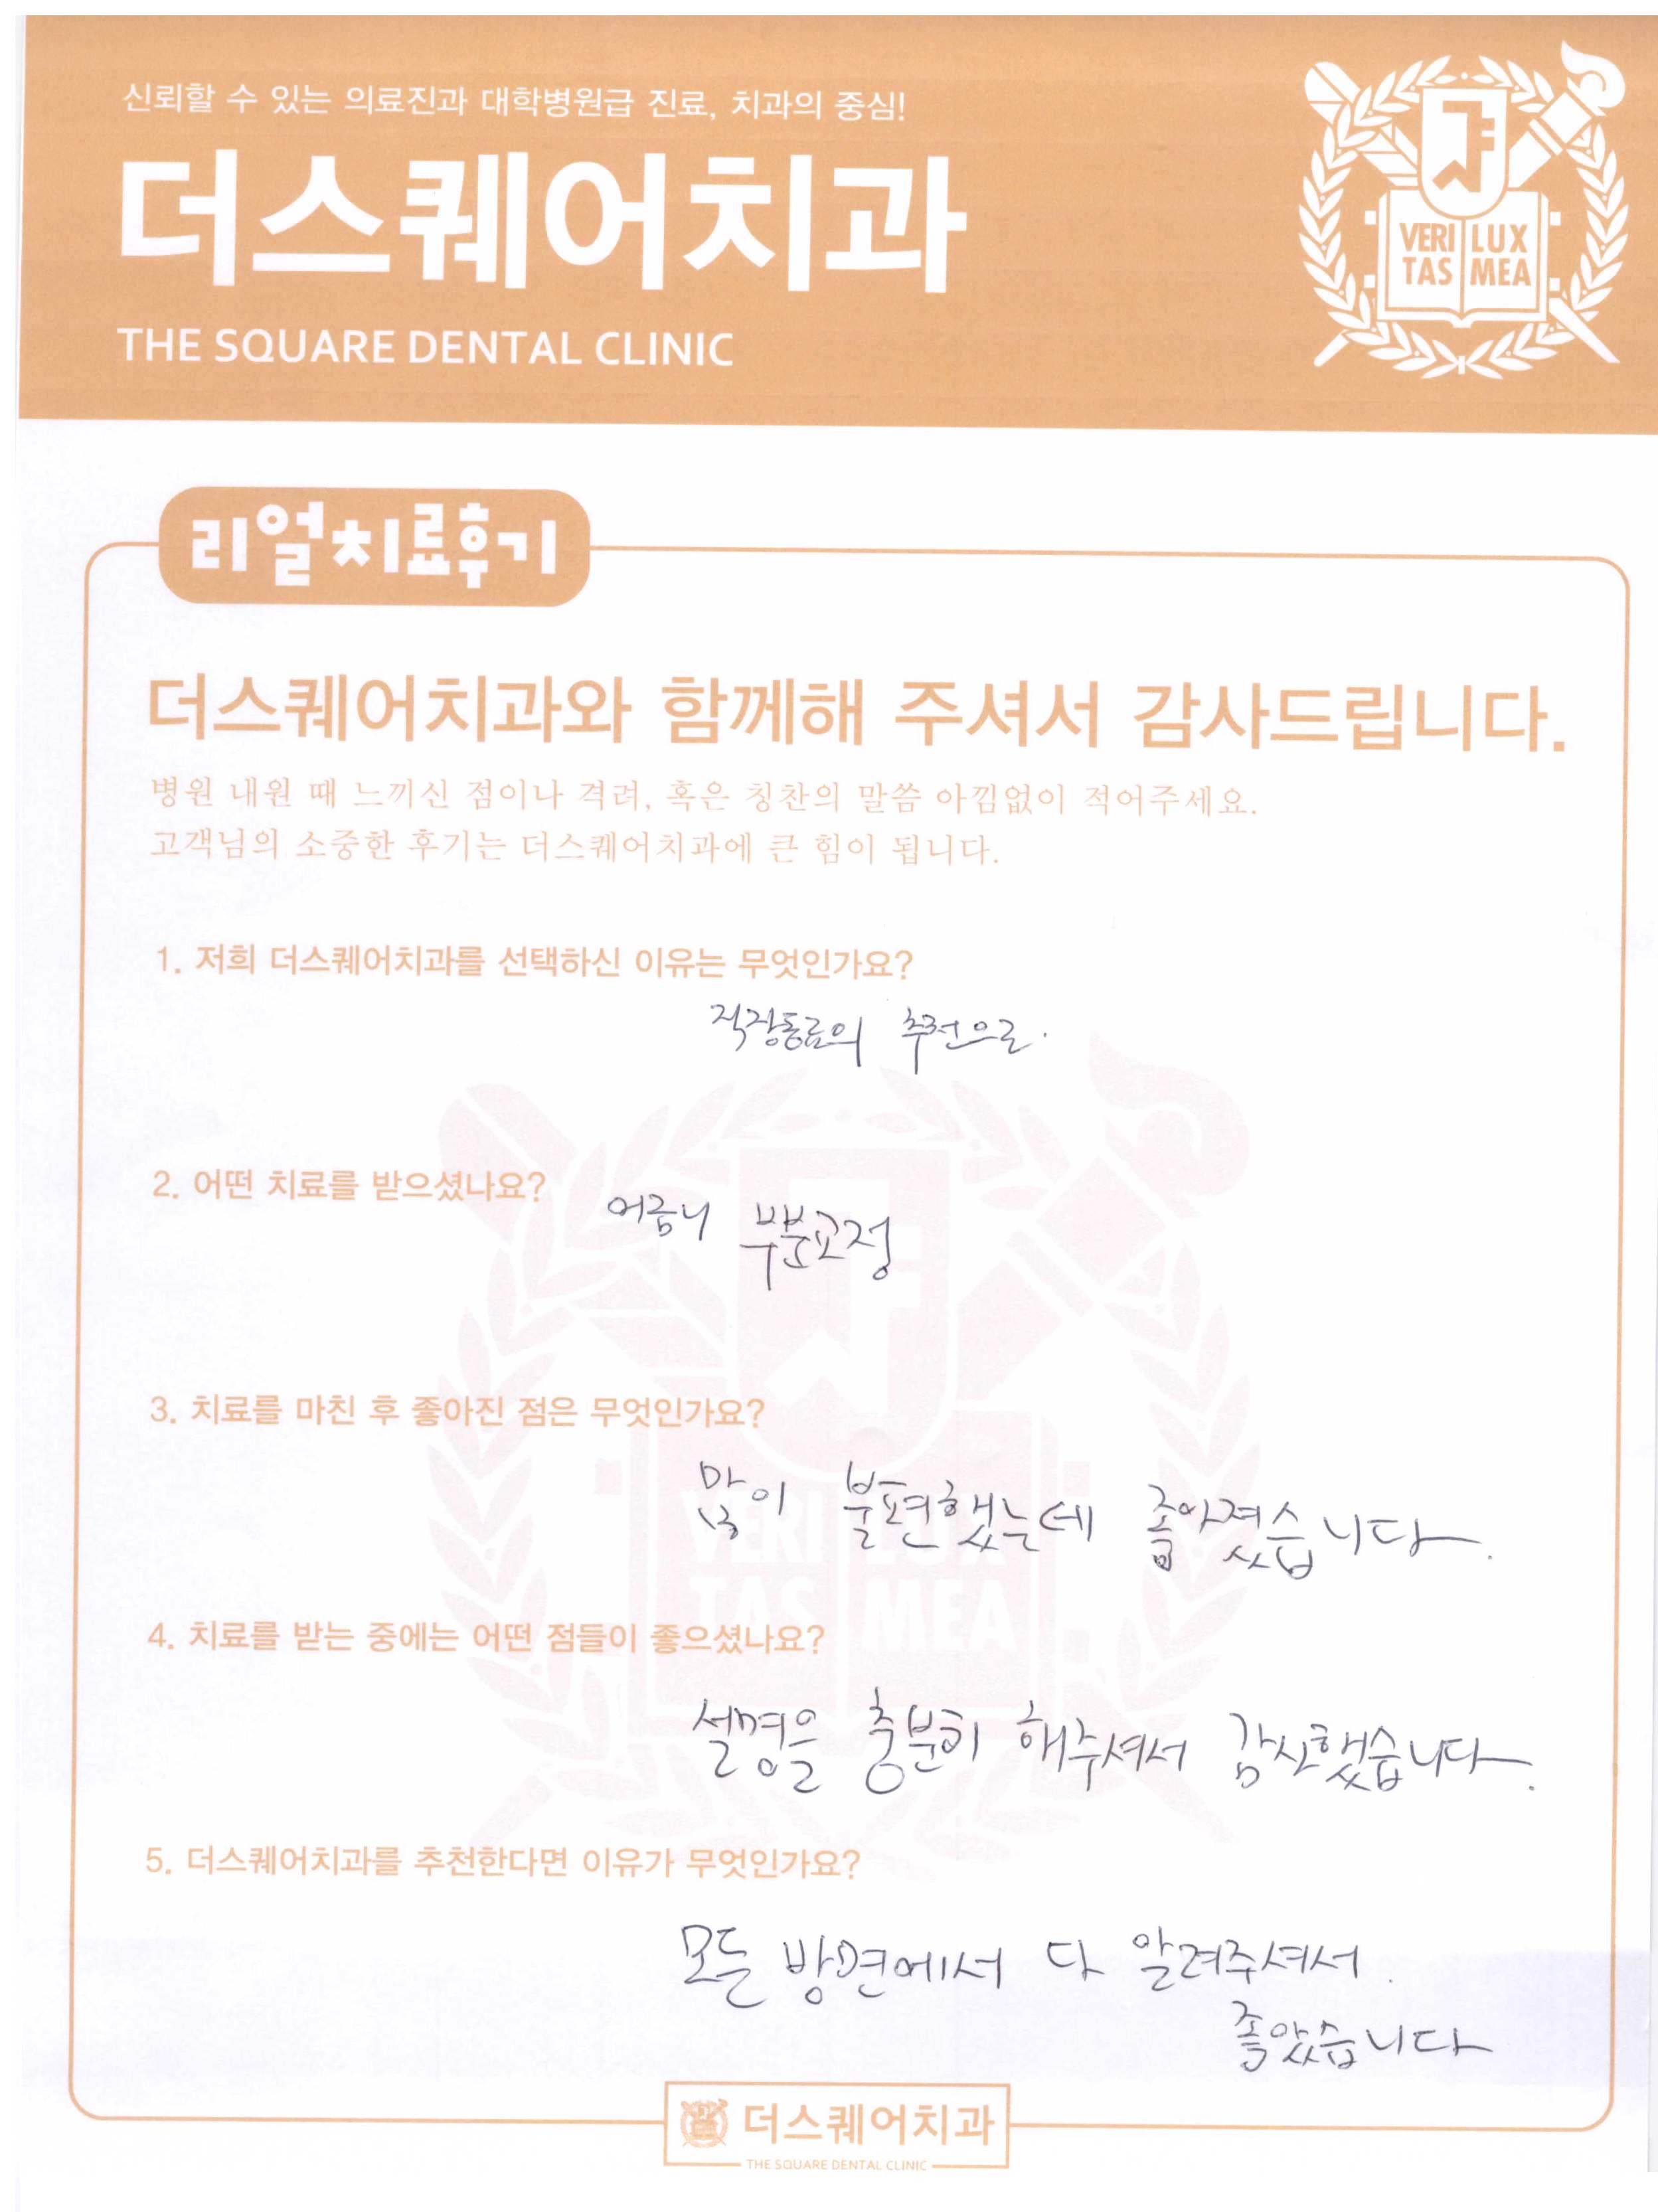 신뢰할 수 있는 의료진과 대학병원급 진료, 치과의 중심!
더스퀘어치과
THE SQUARE DENTAL CLINIC
VERI LUX
TAS MEA
리얼치료후기
더스퀘어치과와 함께해 주셔서 감사드립니다.
병원 내원 때 느끼신 점이나 격려, 혹은 칭찬의 말씀 아낌없이 적어주세요.
고객님의 소중한 후기는 더스퀘어치과에 큰 힘이 됩니다.
1. 저희 더스퀘어치과를 선택하신 이유는 무엇인가요?
직장동료의 추천으로.
2. 어떤 치료를 받으셨나요?
어금니 부분교정
3. 치료를 마친 후 좋아진 점은 무엇인가요?
많이 불편했는데 좋아졌습니다.
VERI LUX
TAS MEA
4. 치료를 받는 중에는 어떤 점들이 좋으셨나요?
설명을 충분히 해주셔서 감사했습니다.
5. 더스퀘어치과를 추천한다면 이유가 무엇인가요?
모든 방면에서 다 알려주셔서.
좋았습니다
더스퀘어치과
THE SQUARE DENTAL CLINIC